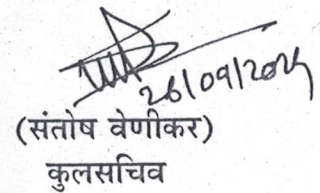 26/09/2025
(संतोष वेणीकर)
कुलसचिव